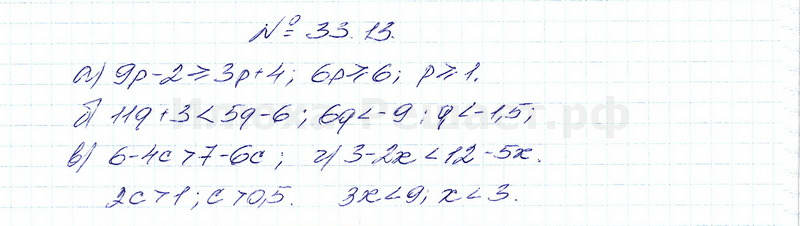 № 33.13.
а) 9p-2≥3p+4; 6p≥6; p≥1.
б) 11q+3<5q-6; 6q<-9; q<-1,5;
в) 6-4c>7-6c; г) 3-2x<12-5x.
2c>1; c>0,5. 3x<9; x<3.